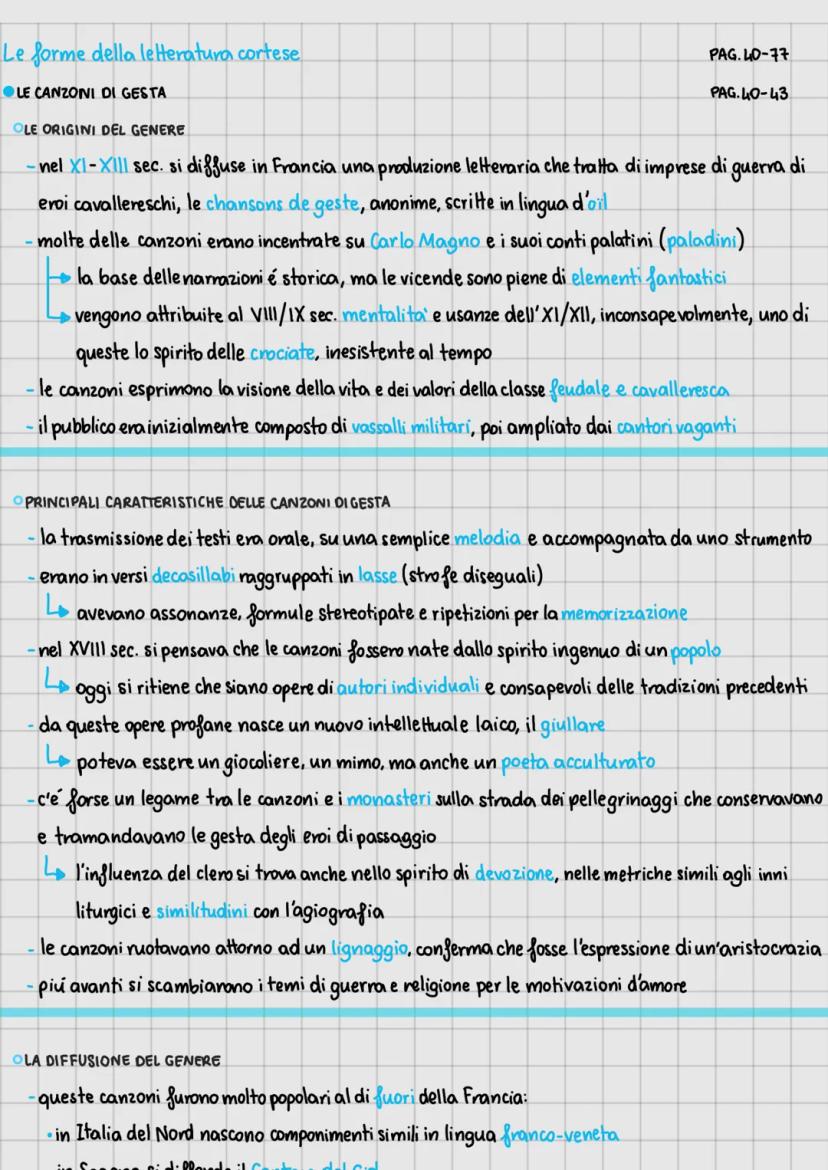 Le forme della letteratura cortese PAG.40-77
LE CANZONI DI GESTA PAG.40-43
LE ORIGINI DEL GENERE
- nel XI-XIII sec. si diffuse in Francia una produzione letteraria che tratta di imprese di guerra di
eroi cavallereschi, le chansons de geste, anonime, scritte in lingua d'oïl
- molte delle canzoni erano incentrate su Carlo Magno e i suoi conti palatini (paladini)
la base delle narrazioni é storica, ma le vicende sono piene di elementi fantastici
vengono attribuite al VIII/IX sec. mentalita' e usanze dell'XI/XII, inconsapevolmente, uno di
queste lo spirito delle crociate, inesistente al tempo
- le canzoni esprimono la visione della vita e dei valori della classe feudale e cavalleresca
- il pubblico era inizialmente composto di vassalli militari, poi ampliato dai cantori vaganti
PRINCIPALI CARATTERISTICHE DELLE CANZONI DI GESTA
- la trasmissione dei testi era orale, su una semplice melodia e accompagnata da uno strumento
- erano in versi decasillabi raggruppati in lasse (strofe diseguali)
avevano assonanze, formule stereotipate e ripetizioni per la memorizzazione
- nel XVIII sec. si pensava che le canzoni fossero nate dallo spirito ingenuo di un popolo
oggi si ritiene che siano opere di autori individuali e consapevoli delle tradizioni precedenti
- da queste opere profane nasce un nuovo intellettuale laico, il giullare
poteva essere un giocoliere, un mimo, ma anche un poeta acculturato
- c'é forse un legame tra le canzoni e i monasteri sulla strada dei pellegrinaggi che conservavano
e tramandavano le gesta degli eroi di passaggio
l'influenza del clero si trova anche nello spirito di devozione, nelle metriche simili agli inni
liturgici e similitudini con l'agiografia
- le canzoni ruotavano attorno ad un lignaggio, conferma che fosse l'espressione di un'aristocrazia
- piú avanti si scambiarono i temi di guerra e religione per le motivazioni d'amore
LA DIFFUSIONE DEL GENERE
- queste canzoni furono molto popolari al di fuori della Francia:
• in Italia del Nord nascono componimenti simili in lingua franco-veneta